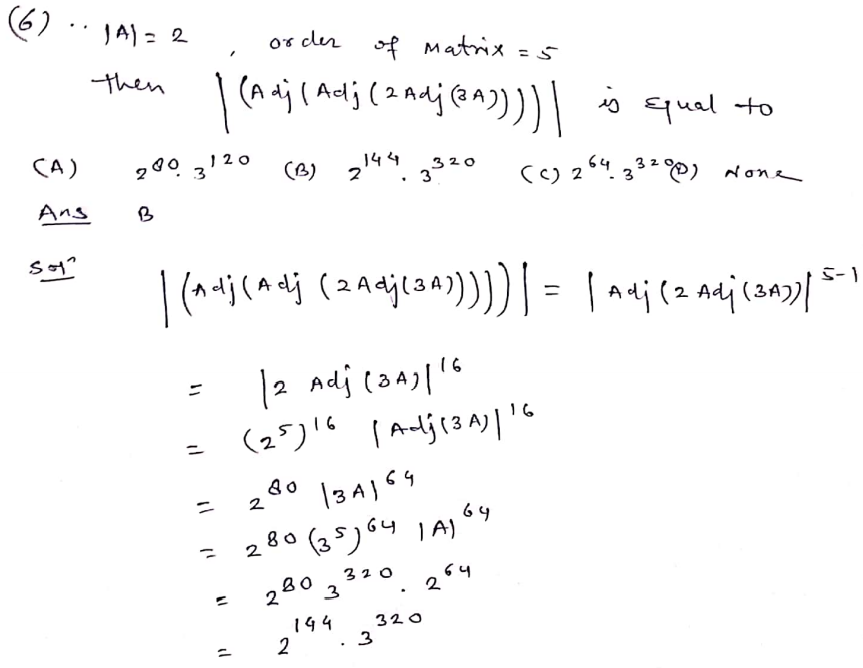 (6) .. |A| = 2 , order of Matrix = 5
then |(Adj(Adj(2Adj(3A))))| is Equal to
(A) 2^80. 3^120 (B) 2^144. 3^320 (C) 2^64. 3^320 (D) None
Ans B
Solⁿ
|(Adj(Adj(2Adj(3A)))))| = |Adj(2Adj(3A))|^5-1
= |2 Adj(3A)|^16
= (2^5)^16 |Adj(3A)|^16
= 2^80 |3A|^64
= 2^80 (3^5)^64 |A|^64
= 2^80 3^320 . 2^64
= 2^144 . 3^320